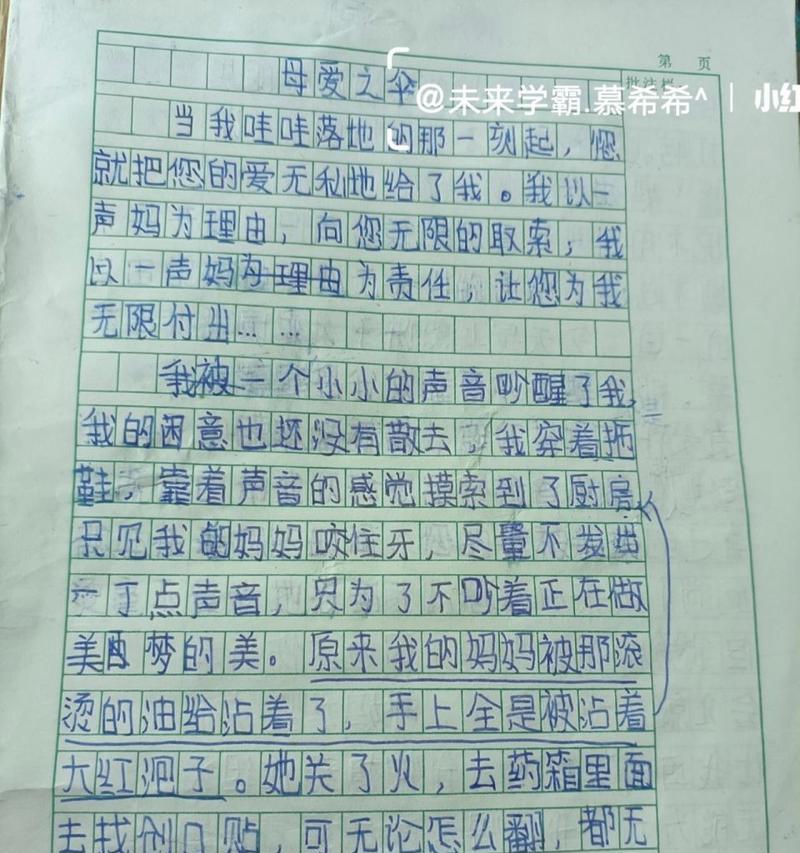 第 页
批注栏
母爱之伞
@未来学霸.慕希希^ | 小红
当我哇哇落地的那一刻起，您
就把您的爱无私地给了我。我以一
声妈为理由，向您无限的取索，我
以一声妈为理由为责任，让您为我
无限付出……
我被一个小小的声音吵醒了我，
我的困意也还没有散去，我穿着拖
鞋，靠着声音的感觉摸索到了厨房
只见我的妈妈咬住牙，尽量不发出
一丁点声音，只为了不吵着正在做
美梦的美。原来我的妈妈被那滚
烫的油给沾着了，手上全是被沾着
大红泡子。她关了火，去药箱里面
去找创口贴，可无论怎么翻，都无